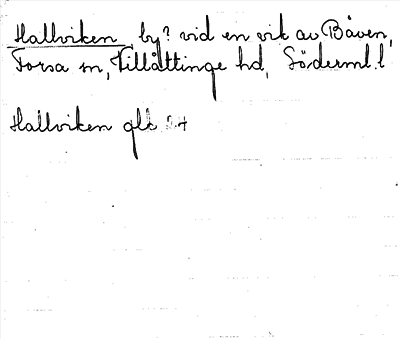 Hallviken by? vid en vik av Båven,
Forsa sn, Villåttinge hd, Söderml. l
Hallviken glk